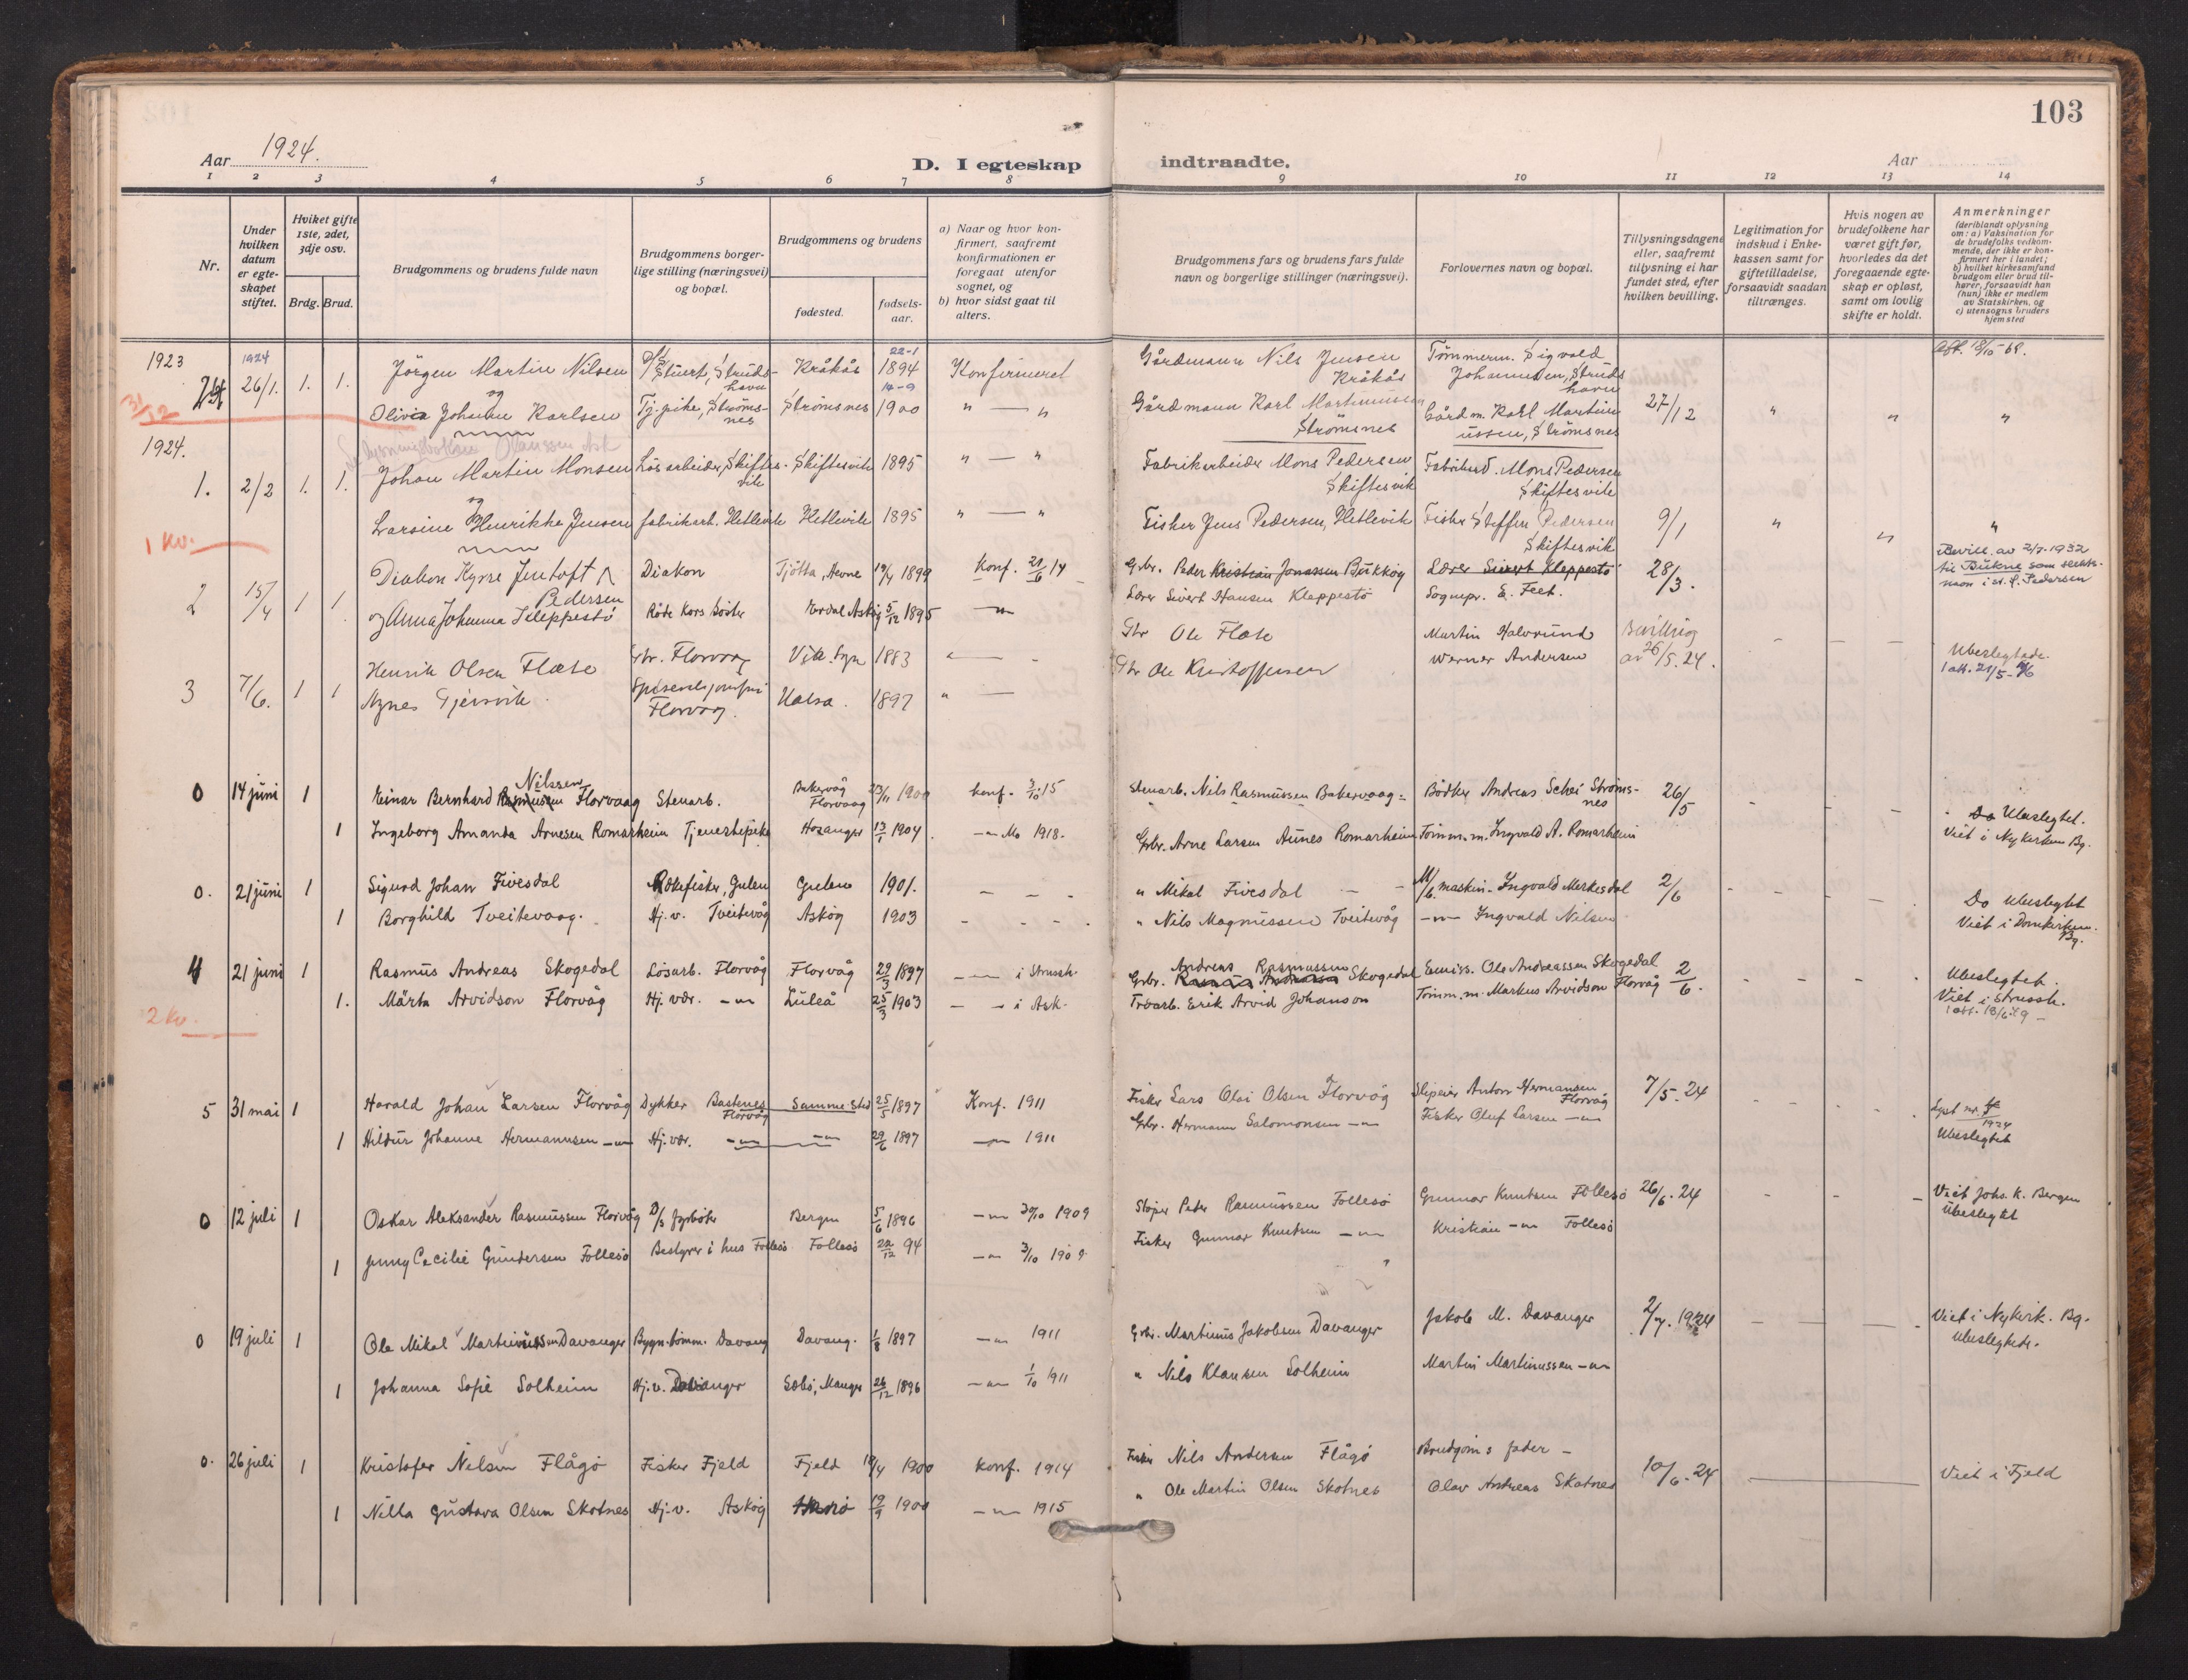 103
Aar 1924.
D. I egteskap indtraadte.
Aar
1 2 3 4 5 6 7 8 9 10 11 12 13 14
Nr.
Under hvilken datum er egteskapet stiftet.
Hviket gifte 1ste, 2det, 3dje osv.
Brdg. Brud.
Brudgommens og brudens fulde navn
Brudgommens borgerlige stilling (næringsvei) og bopæl.
Brudgommens og brudens
fødested.
fødselsaar.
a) Naar og hvor konfirmert, saafremt konfirmationen er foregaat utenfor sognet, og
b) hvor sidst gaat til alters.
Brudgommens fars og brudens fars fulde navn og borgerlige stillinger (næringsvei).
Forlovernes navn og bopæl.
Tillysningsdagene eller, saafremt tillysning ei har fundet sted, efter hvilken bevilling.
Legitimation for indskud i Enkekassen samt for giftetilladelse, forsaavidt saadan tiltrænges.
Hvis nogen av brudefolkene har været gift før, hvorledes da det foregaaende egteskap er opløst, samt om lovlig skifte er holdt.
Anmerkninger (deriblandt oplysning om: a) Vaksination for de brudefolks vedkommende, der ikke er konfirmert her i landet; b) hvilket kirkesamfund brudgom eller brud tilhører, forsaavidt han (hun) ikke er medlem av Statskirken, og c) utensogns bruders hjemsted
1923
1924 26/1. 1. 1. Jörgen Martin Nilsen D/S Stuert, Strudshavn Kråkås 22-1 1894 Konfirmeret Gårdmann Nils Jensen Kråkås Tömmerm. Sigvald Johannesen, Strudshavn Att. 18/10-68.
31/12
og
Olivia Johanne Karlsen Tj.pike, Strömsnes Strömsnes 14-9 1900 " — " Gårdmann Karl Martinussen Strömsnes Gårdm. Karl Martinussen, Strömsnes 27/12 " " "
1924.
1. 2/2 1. 1. Johan Martin Monsen Lösarbeider, Skiftesvik Skiftesvik 1895 " — " Fabrikarbeider Mons Pedersen Skiftesvik Fabrikarb. Mons Pedersen Skiftesvik
og
Larsine Henrikke Jensen fabrikarb. Hetlevik Hetlevik 1895 " — " Fisker Jens Pedersen, Hetlevik Fisker Steffen Pedersen Skiftesvik 9/1 " " "
1 kv.
2 15/4 1 1 Diakon Kyrre Jentoft Pedersen Diakon Tjötta, Hevne 19/4 1899 Konf. 21/6 14 Grbr. Peder Kristian Jonassen Bukkøy Lærer Sivert Kleppestö 28/3. Bevill. av 2/7-1932 til Bukne som slektsnavn i st. f. Pedersen
og Anna Johanna Kleppestö Röde Kors Söster Erdal Askøy 5/12 1895 — Lærer Sivert Hansen Kleppestö Sognepr. E. Feet.
3 7/6. 1 1 Henrik Olsen Flæte Grbr. Florvaag Vik. Sogn 1883 Gbr Ole Flæte Martin Halvrund Bevilling av 26/5.24. Ubeslegtede.
Agnes Gjersvik Florvaag. Halsa. 1897 Gbr Ole Kristoffersen Werner Andersen
0 14 juni 1 Einar Bernhard Rasmussen Nilssen Florvaag Stenarb. Bakervåg Florvaag 23/11 1900 konf. 3/10 15 Stenarb. Nils Rasmussen Bakervaag Bödker Andreas Schei Strömsnes 26/5 - - - Do Ubeslegtet. Viet i Nykirken Bg.
1 Ingeborg Amanda Arnesen Romarheim Tjenestepike Hosanger 13/1 1904. — Mo 1918. Grbr. Arne Larsen Aunes Romarheim Tömm.m. Ingvald A. Romarheim
0. 21 juni 1 Sigurd Johan Fivesdal Rokefisker, Gulen Gulen 1901. - - - " Mikal Fivesdal maskin. Ingvald Merkesdal 2/6 - - - Do Ubeslegtet Viet i Domkirken. Bg.
1 Borghild Tveitevaag. Hj. v. Tveitevåg Askøy 1903 - - - " Nils Magnussen Tveitevåg — Ingvald Nilsen
4 21 juni 1 Rasmus Andreas Skogedal Lösarb. Florvåg Florvåg 29/3 1897 — i Strussh. Grbr. Rasmus Andreas Andreas Rasmussen Skogedal Emiss. Ole Andreassen Skogedal 2/6. - - - Ubeslegtet. Viet i Strussh.
1. Märta Arvidson Florvåg Hj. vær. — Luleå 25/3 1903 — i Ask. Trearb. Erik Arvid Johanson Tömm.m. Markus Arvidson Florvåg
2 kv.
5 31 mai 1 Harald Johan Larsen Florvåg Dykker Bastenes Florvåg Samme sted 25/5 1897 Konf. 1911 Fisker Lars Olai Olsen Florvåg Sliperier Anton Hermansen Florvåg 7/5.24 - - - Lyst nr. 4/1924 Ubeslegtet
1 Hildur Johanne Hermannsen — Hj. vær. — — 29/6 1897 — 1911 Grbr. Hermann Salomonsen — Fisker Oluf Larsen —
0 12 juli 1 Oskar Aleksander Rasmussen Florvåg D/S fyrböter Bergen 5/6 1896 — 30/10 1909 Sløper Peter Rasmussen Follesø Gunnar Knutsen Follesø 26/6.24 - - - Viet Johs. K. Bergen Ubeslegtet
1 Jenny Cecilie Gundersen Follesø Bestyrer i hus Follesø Follesø 22/12 94 — 3/10 1909 Fisker Gunnar Knutsen — Kristian — Follesø
0 19 juli 1 Ole Mikal Martinussen Davanger Bygn.tömm. Davang Davang. 1/8 1897 — 1911 Grbr. Martinus Jakobsen Davanger Jakob M. Davanger 2/7. 1924 - - - Viet i Nykirk. Bg. Ubeslegtede.
1 Johanna Sofie Solheim Hj. v. Davanger Sæbö, Manger 26/12 1896 — 1/10 1911 " Nils Klausen Solheim Martin Martinussen —
0. 26 juli 1 Kristofer Nilsen Flågö Fisker Fjeld Fjeld 18/4 1900 konf. 1914 Fisker Nils Andersen Flågö Brudgoms fader - 10/6.24 — Viet i Fjeld
1 Nilla Gustava Olsen Skotnes Hj. v. Askøy 19/9 1900 — 1915 " Ole Martin Olsen Skotnes Olav Andreas Skotnes